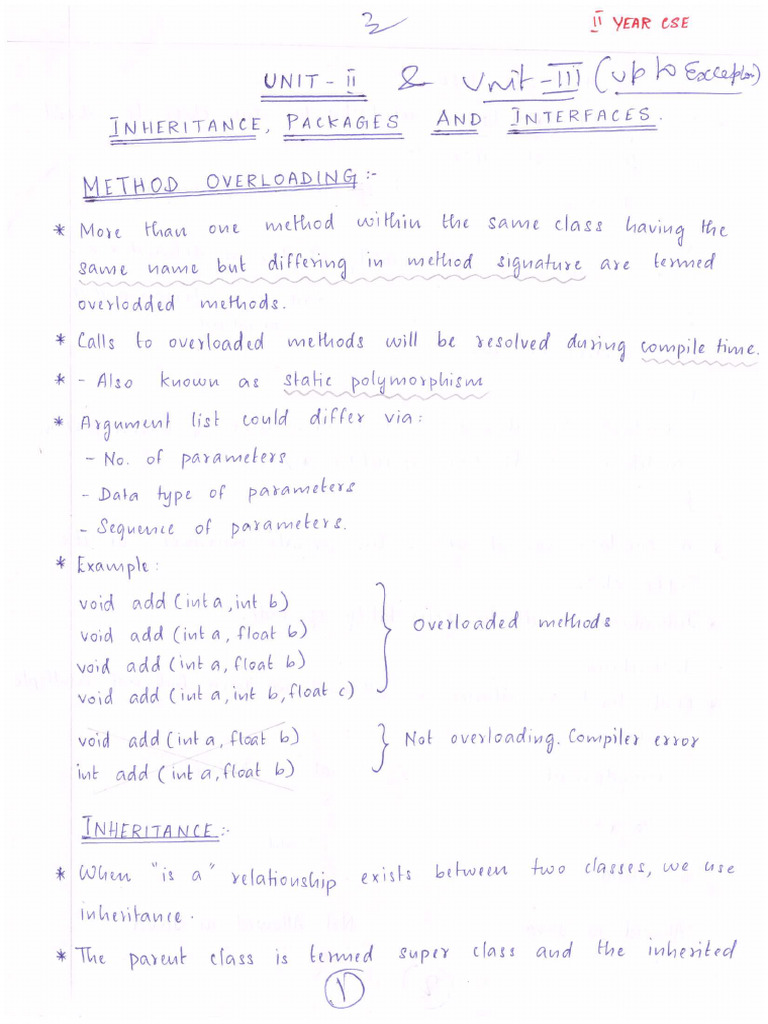 3
II YEAR CSE
UNIT - II & Unit - III (up to Exception)
INHERITANCE, PACKAGES AND INTERFACES.
METHOD OVERLOADING:-
* More than one method within the same class having the
same name but differing in method signature are termed
overlodded methods.
* Calls to overloaded methods will be resolved during compile time.
* - Also known as static polymorphism
* Argument list could differ via:
- No. of parameters
- Data type of parameters
- Sequence of parameters.
* Example:
void add (int a, int b)
void add (int a, float b)
void add (int a, float b)
void add (int a, int b, float c)
Overloaded methods
void add (int a, float b)
int add (int a, float b)
Not overloading. Compiler error
INHERITANCE:-
* When "is a" relationship exists between two classes, we use
inheritance.
* The parent class is termed super class and the inherited
1